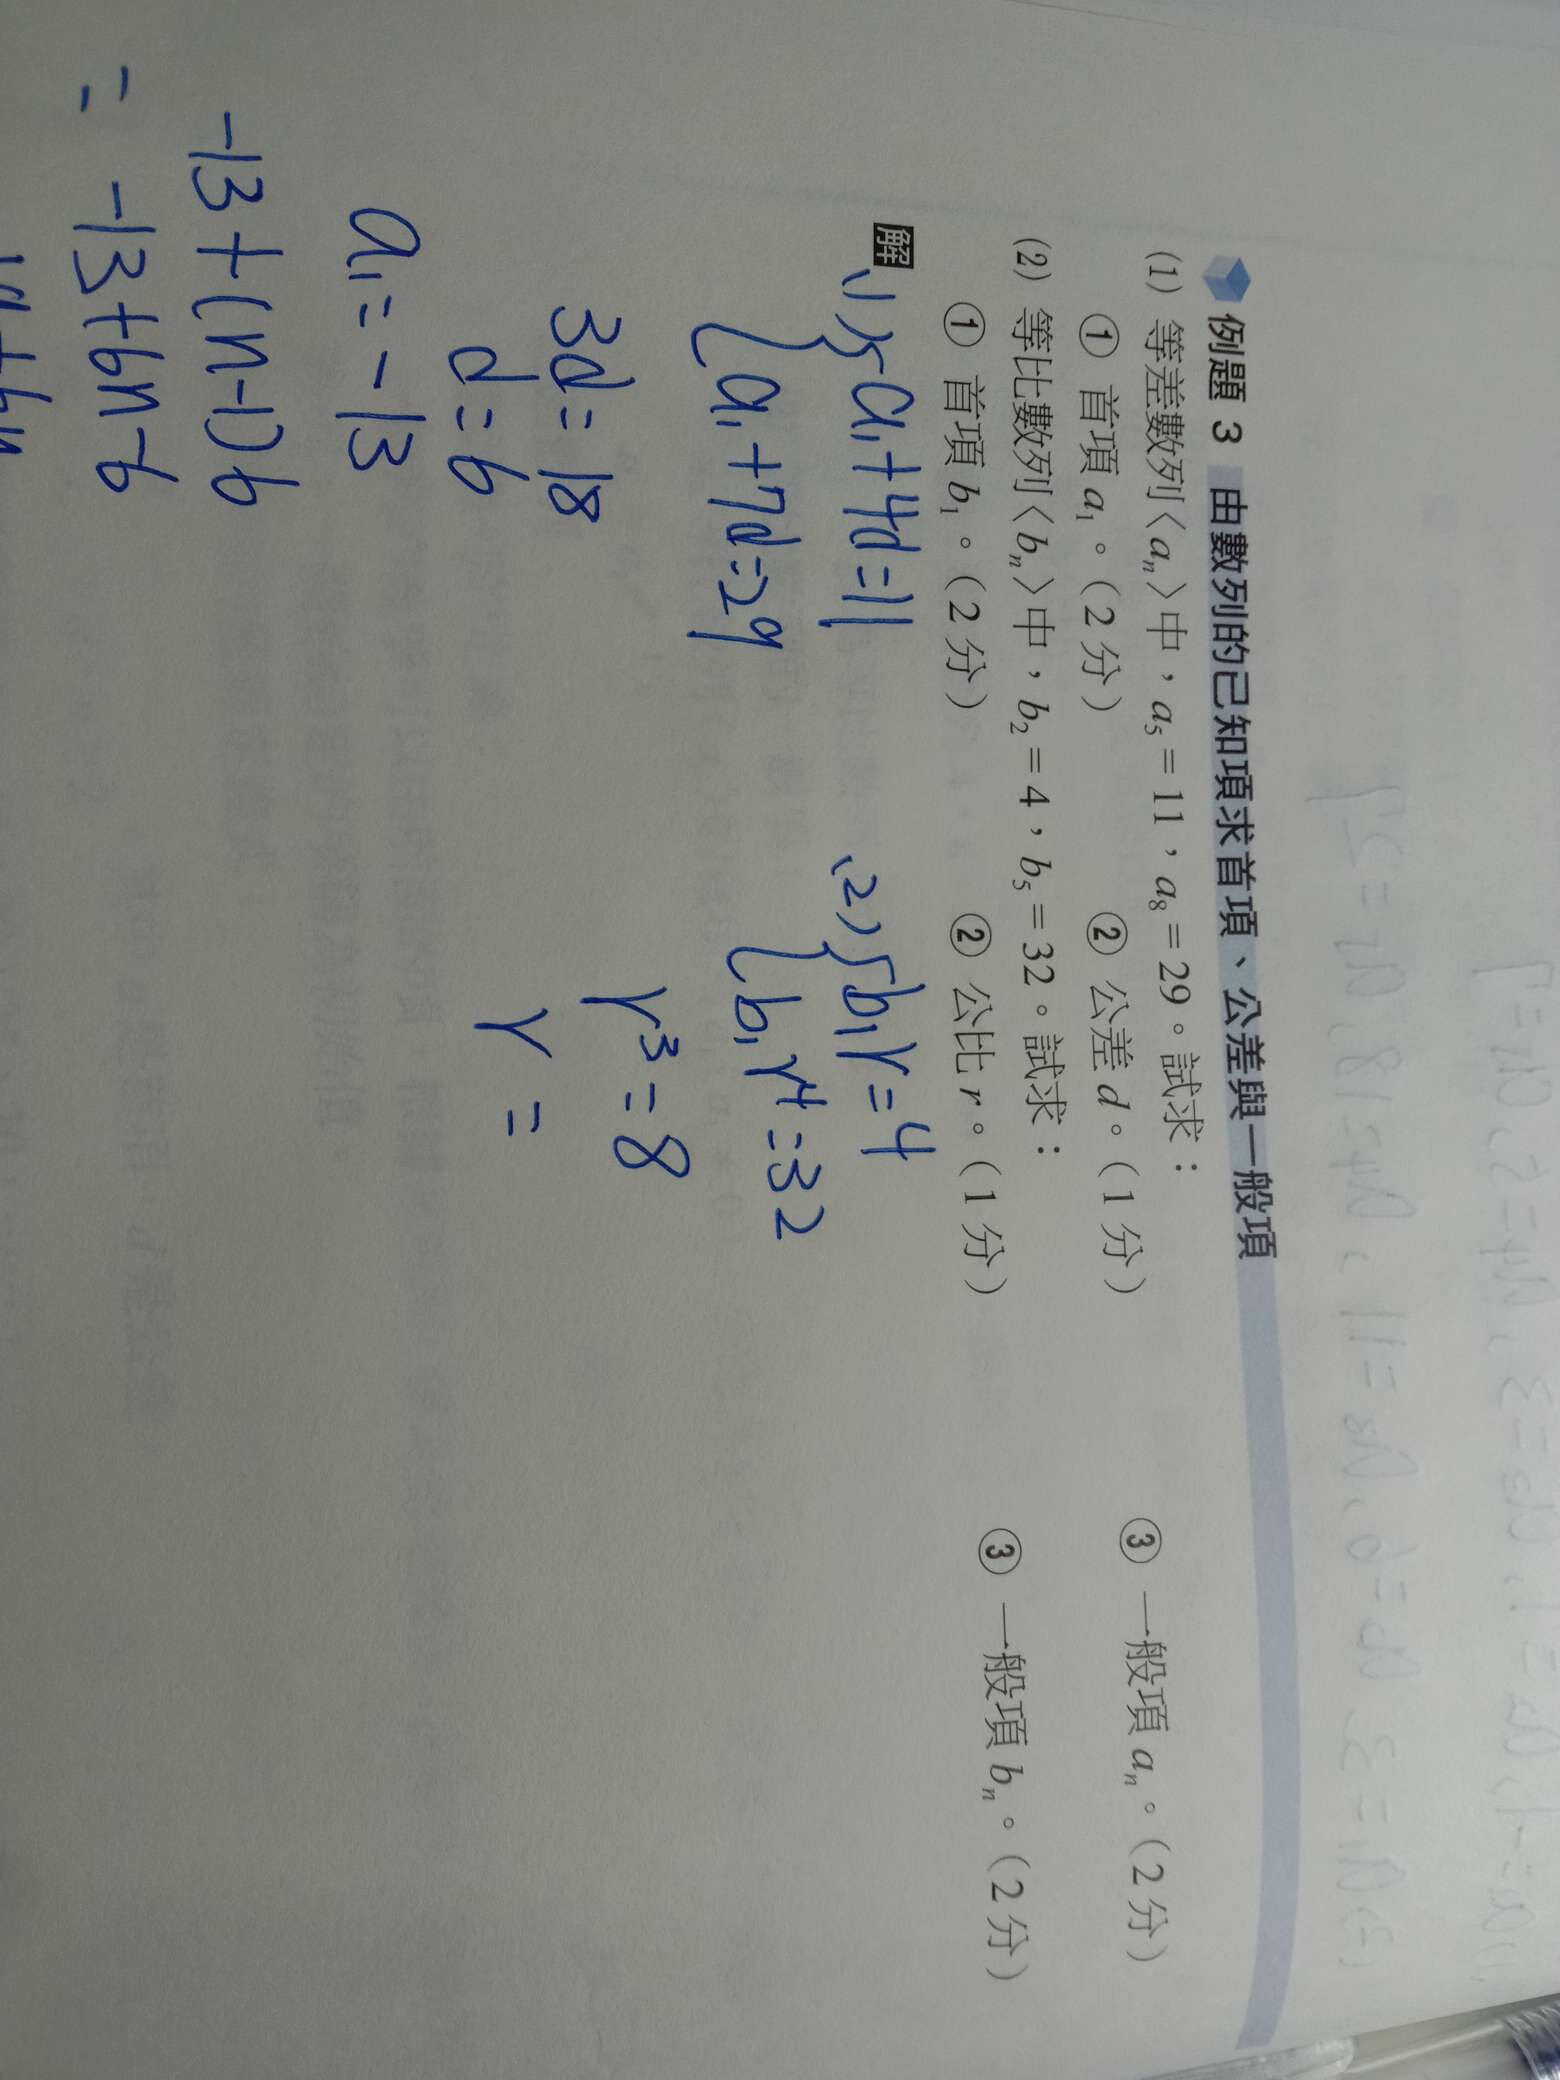 例題 3 由數列的已知項求首項、公差與一般項
(1) 等差數列〈aₙ〉中，a₅=11，a₈=29。試求：
① 首項 a₁。(2分) ② 公差 d。(1分) ③ 一般項 aₙ。(2分)
(2) 等比數列〈bₙ〉中，b₂=4，b₅=32。試求：
① 首項 b₁。(2分) ② 公比 r。(1分) ③ 一般項 bₙ。(2分)
解
(1) { a₁+4d=11
a₁+7d=29
3d=18
d=6
a₁=-13
-13+(n-1)6
= -13+6n-6
(2) { b₁r=4
b₁r⁴=32
r³=8
r=